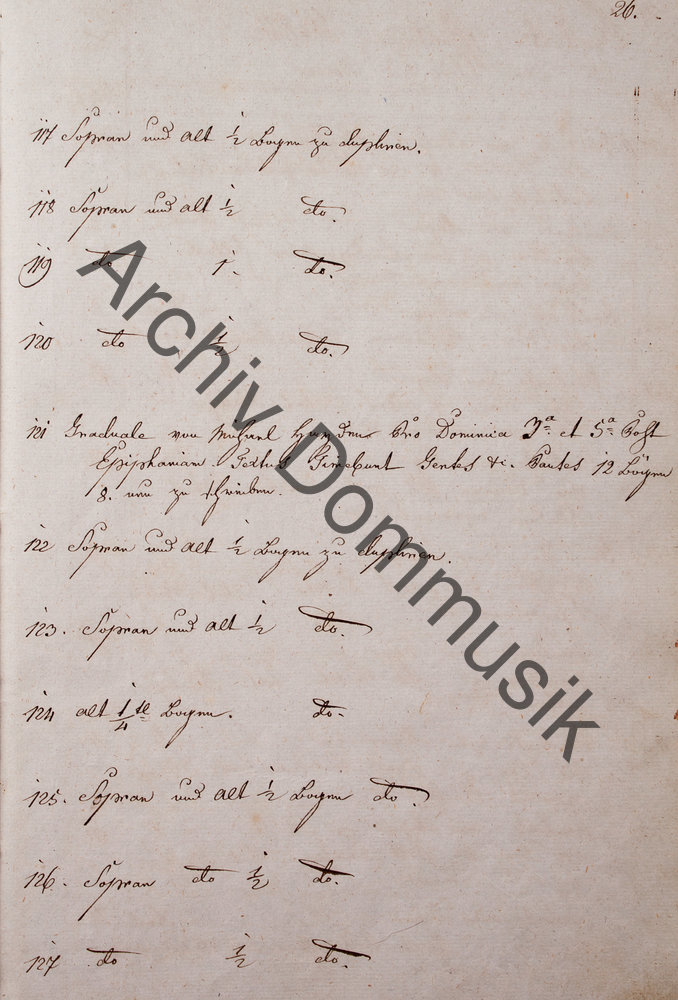 26.
117 Sopran und Alt ½ Bogen zu dupliren.
118 Sopran und Alt ½ do.
119 do 1. do.
120 do ½ do.
121 Graduale von Michael Haydn Pro Dominica 3ª et 5ª Post
Epiphaniam. Textus Timebunt Gentes &c. Partes 12 Bögen
8. neu zu schreiben.
122 Sopran und Alt ½ Bogen zu dupliren.
123. Sopran und Alt ½ do.
124 Alt 1/4 tl Bogen. do.
125. Sopran und Alt ½ Bogen do.
126. Sopran do ½ do.
127 do ½ do.
Archiv Dommusik